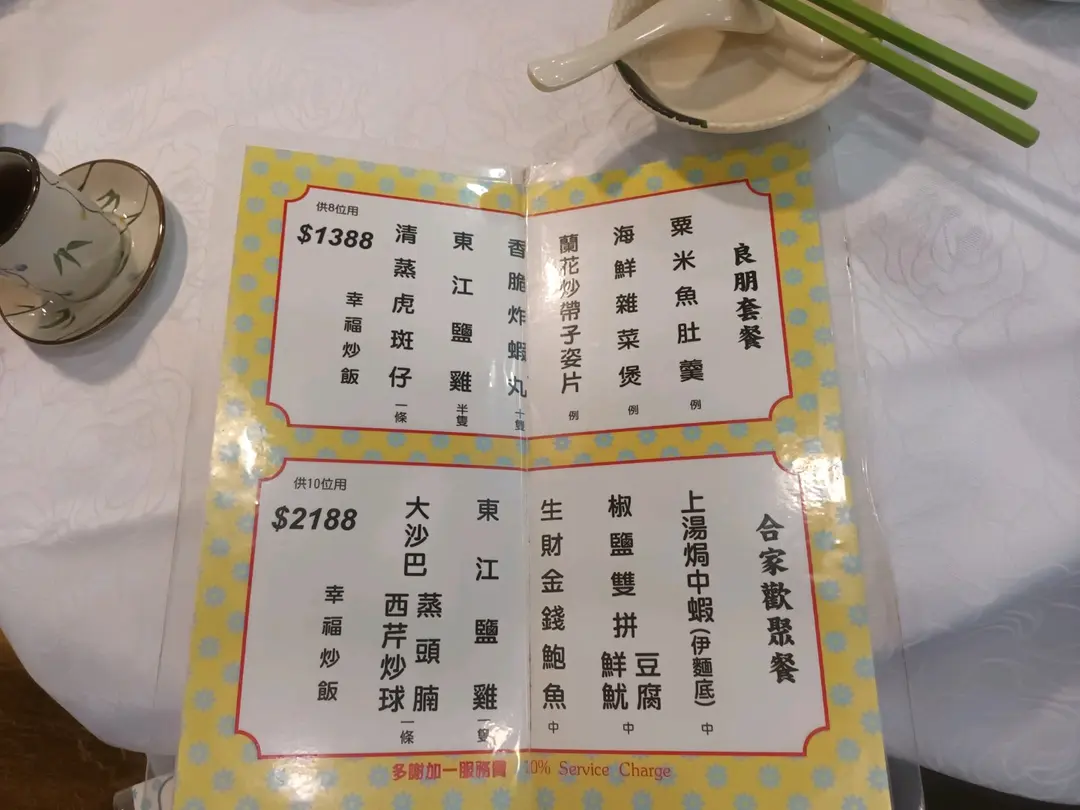 良朋套餐
粟米魚肚羹 例
海鮮雜菜煲 例
蘭花炒帶子姿片 例
香脆炸蝦丸 十隻
東江鹽雞 半隻
清蒸虎斑仔 一條
幸福炒飯
供8位用
$1388
合家歡聚餐
上湯焗中蝦(伊麵底) 中
椒鹽雙拼 豆腐 鮮魷 中
生財金錢鮑魚 中
東江鹽雞 一隻
大沙巴 蒸頭腩 西芹炒球 一條
幸福炒飯
供10位用
$2188
多謝加一服務費 10% Service Charge